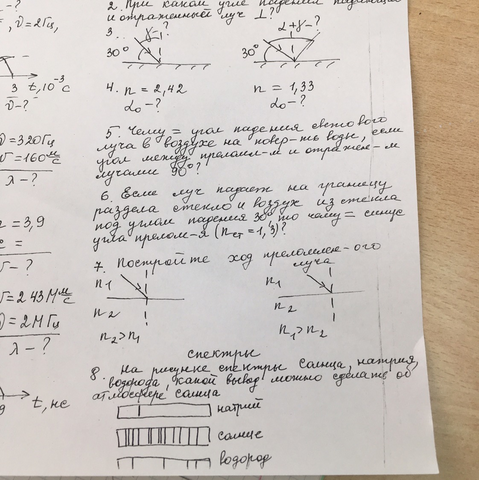 2. При каком угле падения падающий
и отраженный луч ⊥?
3. γ-? α+γ-?
30° 30°
4. n = 2,42 n = 1,33
α₀-? α₀-?
5. Чему = угол падения светового
луча в воздухе на повер-ть воды, если
угол между преломл-м и отражен-м
лучами 90°?
6. Если луч падает на границу
раздела стекло и воздух из стекла
под углом падения 30° то чему = синус
угла прелом-я (nст = 1,3)?
7. Постройте ход преломлен-ого
луча
n₁ n₁
n₂ n₂
n₂>n₁ n₁>n₂
спектры
8. На рисунке спектры Солнца, натрия,
водорода, какой вывод можно сделать об
атмосфере солнца
натрий
солнце
водород
-?
ν=2Гц,
t,10⁻³ с
ν-?
ν=320Гц
v=160 м/с
λ-?
= 3,9
с =
v-?
v=2 43М м/с
ν=2МГц
λ-?
t, нс